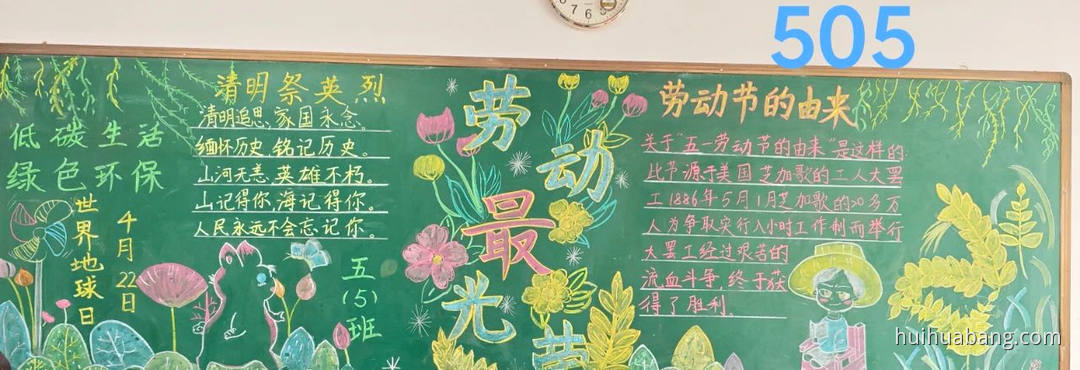 505
低碳生活
绿色环保
世界地球日
4月22日
清明祭英烈
清明追思,家国永念。
缅怀历史,铭记历史。
山河无恙,英雄不朽。
山记得你,海记得你。
人民永远不会忘记你。
五(5)班
劳动最光荣
劳动节的由来
关于“五一劳动节的由来”是这样的.
此节源于美国芝加哥的工人大罢
工1886年5月1月芝加哥的20多万
人为争取实行八小时工作制而举行
大罢工经过艰苦的
流血斗争,终于获
得了胜利.
huihuabang.com